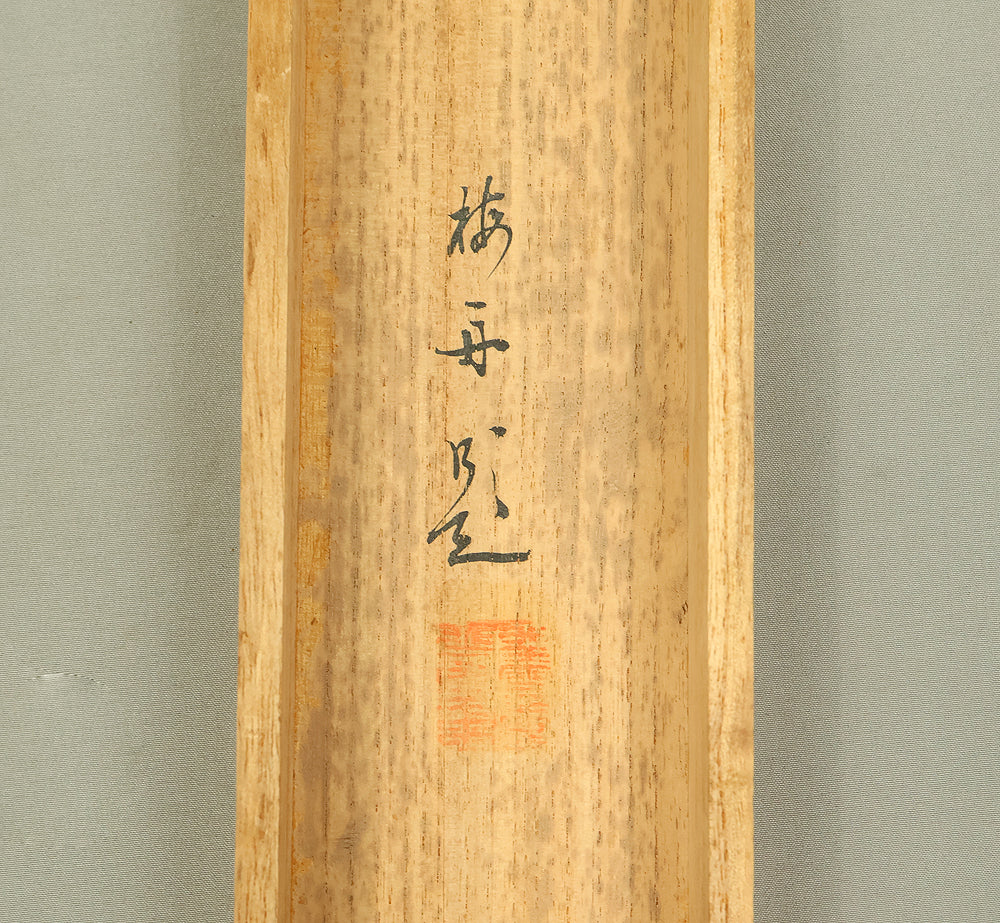 梅舟題